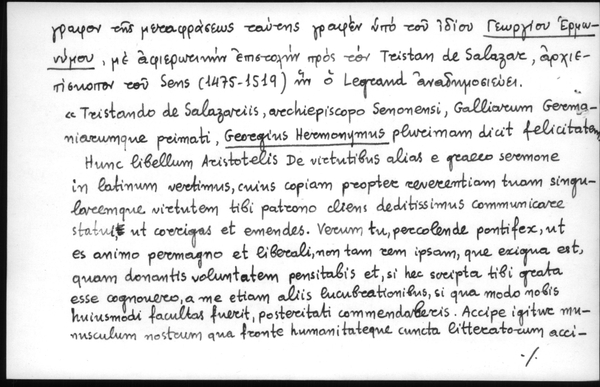 γραφον τῆς μεταφράσεως ταύτης γραφὲν ὑπὸ τοῦ ἰδίου Γεωργίου Ἑρμω-
νύμου, μὲ ἀφιερωτικὴν ἐπιστολὴν πρὸς τὸν Tristan de Salazar, ἀρχιε-
πίσκοπον τοῦ Sens (1475-1519) ἣν ὁ Legrand ἀναδημοσιεύει.
« Tristando de Salazariis, archiepiscopo Senonensi, Galliarum Germa-
niarumque primati, Georgius Hermonymus plurimam dicit felicitatem,
Hunc libellum Aristotelis De virtutibus alias e graeco sermone
in latinum vertimus, cuius copiam propter reverentiam tuam singu-
laremque virtutem tibi patrono cliens deditissimus communicare
statui, ut corrigas et emendes. Verum tu, percolende pontifex, ut
es animo permagno et liberali, non tam rem ipsam, que exigua est,
quam donantis voluntatem pensitabis et, si hec scripta tibi grata
esse cognovero, a me etiam aliis lucubrationibus, si qua modo nobis
huiusmodi facultas fuerit, posteritati commendaberis. Accipe igitur mu-
nusculum nostrum qua fronte humanitateque cuncta litteratorum acci-
./.